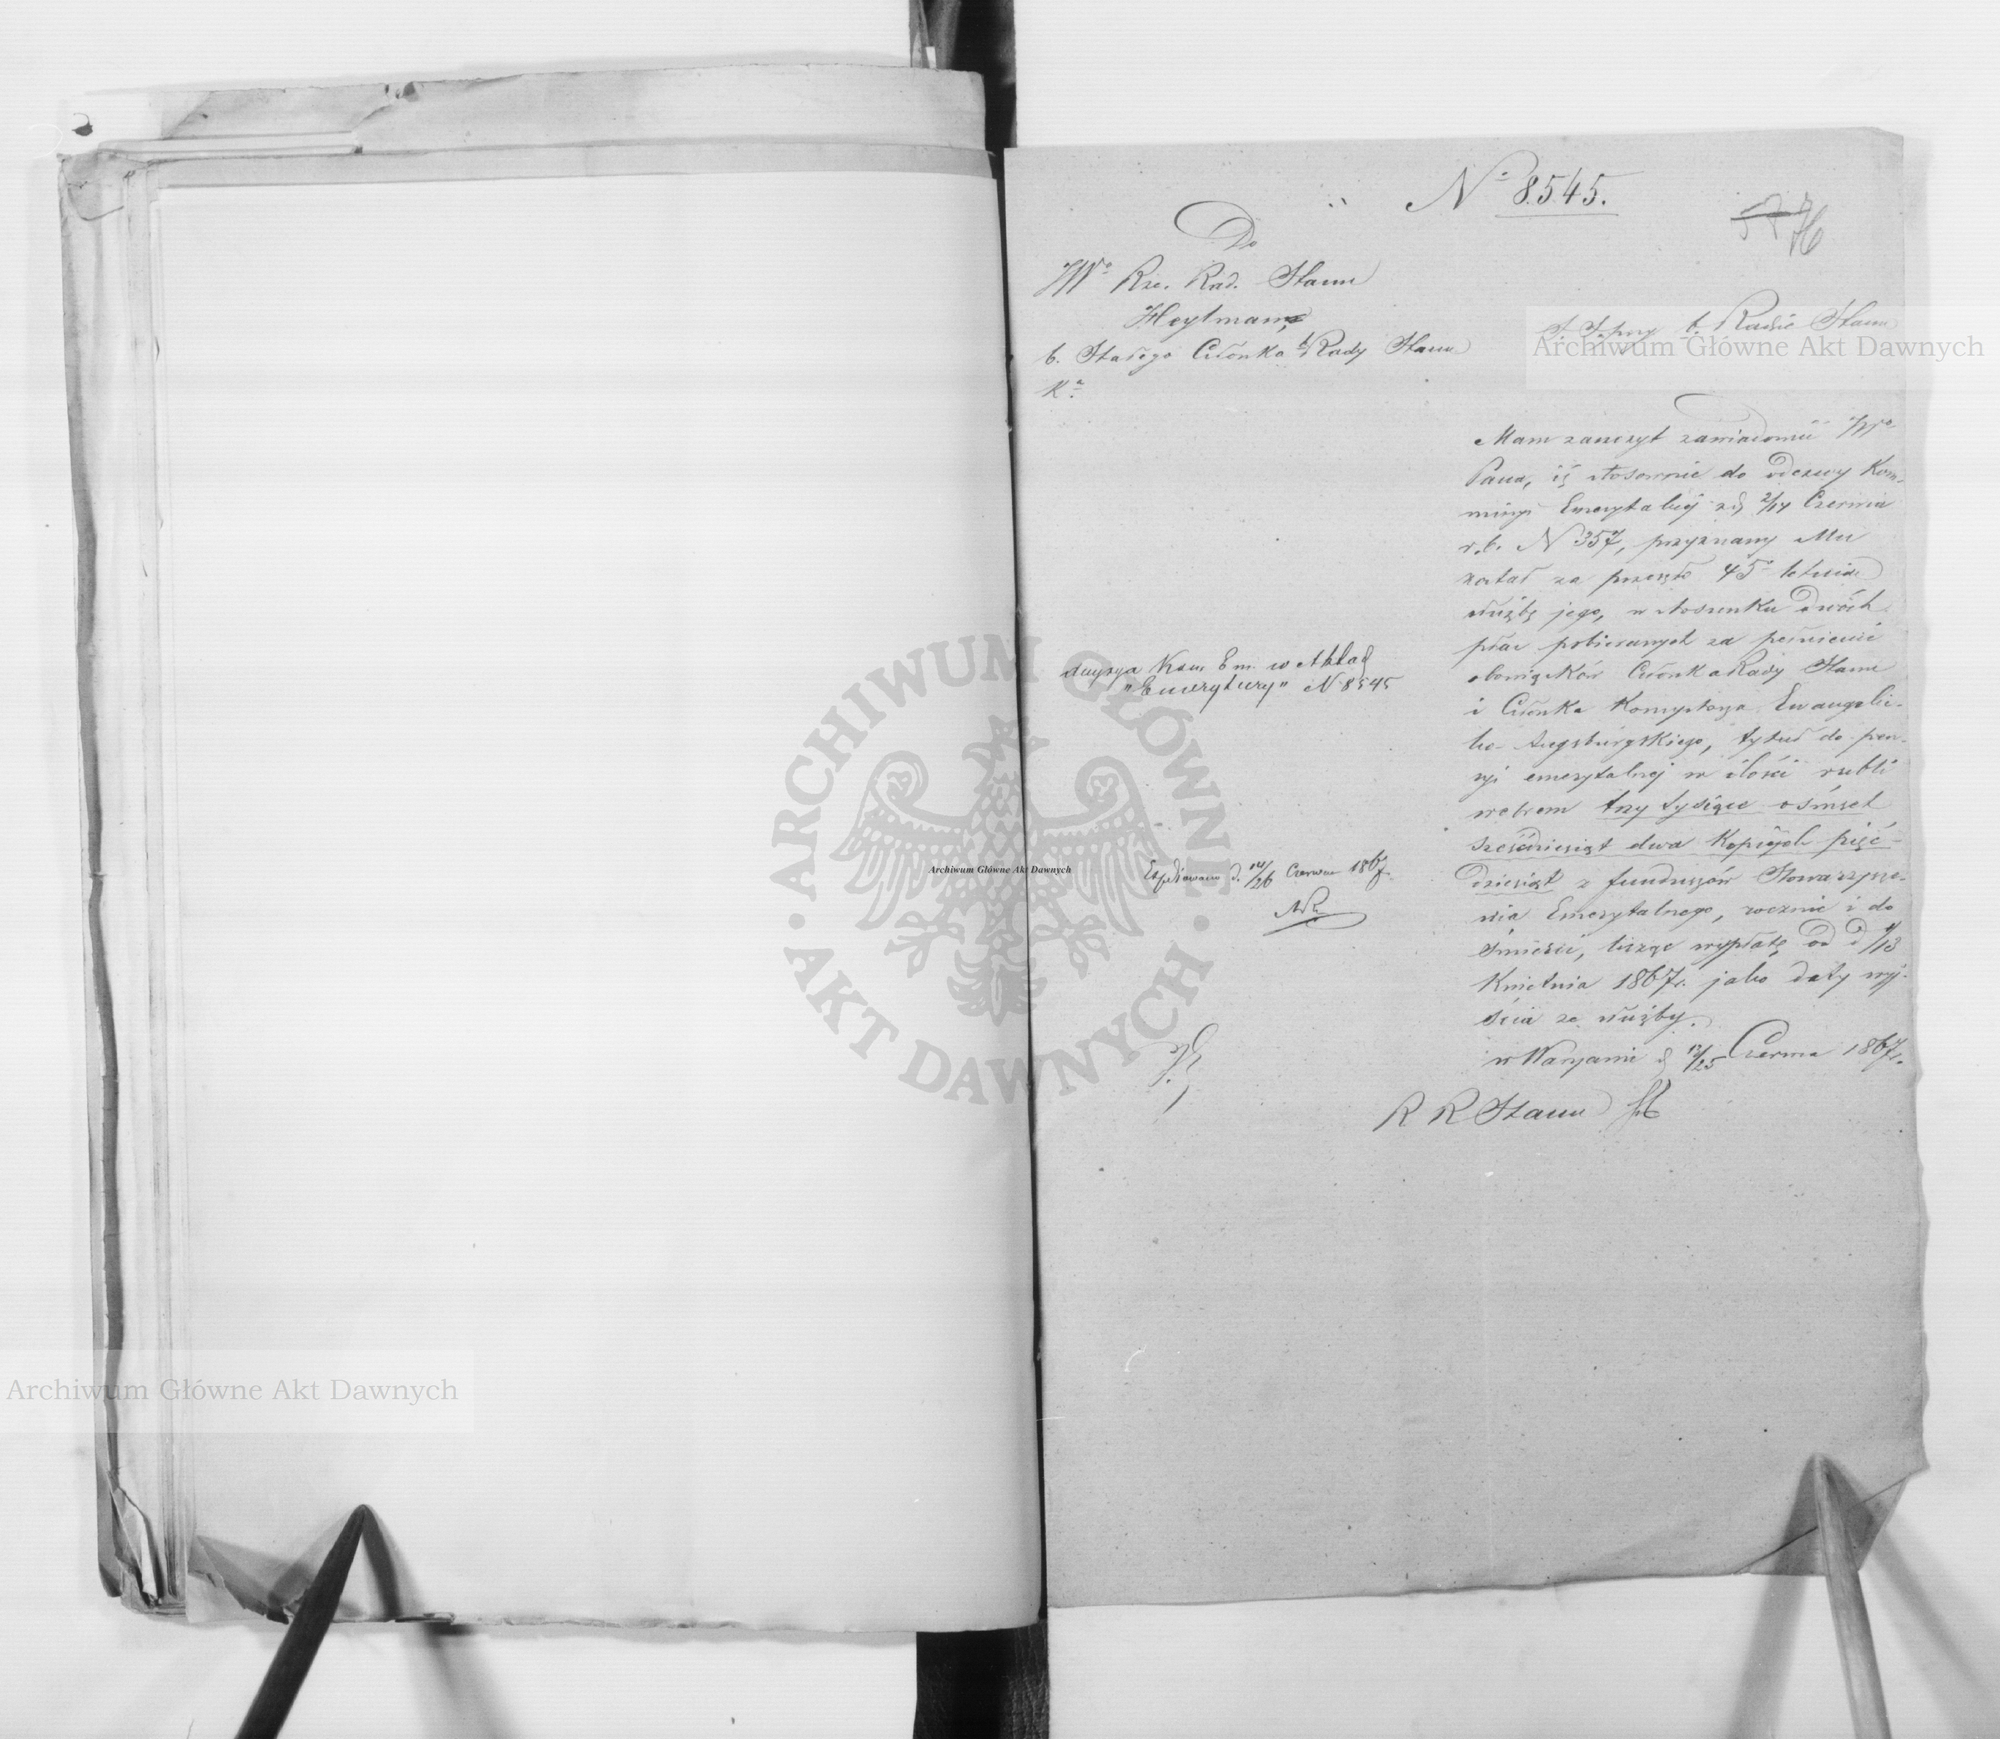 Nº 8545.
57 76
Do
JWº Rze. Rad. Stanu
Heylmana,
b. Stałego Członka b. Rady Stanu
Kª
b. Radzie Stanu
Mam zaszczyt zawiadomić JWº
Pana, iż stosownie do odezwy Kom-
misyi Emerytalnej z d. 2/14 Czerwca
r.b. N 357, przyznany Mu
został za przeszło 45º letnią
służbę jego, w stosunku dwóch
płac pobieranych za pełnienie
obowiązków Członka Rady Stanu
i Członka Konsystorza Ewangelic-
ko-Augsburgskiego, tytuł do pen-
syi emerytalnej w ilości rubli
srebrem trzy tysiące ośmset
sześćdziesiąt dwa kopiejek pięć-
dziesiąt z funduszów Stowarzysze-
nia Emerytalnego, rocznie i do
śmierci, licząc wypłatę od d. 1/13
Kwietnia 1867r. jako daty wyj-
ścia ze służby.
w Warszawie d. 13/25 Czerwca 1867r.
R R Stanu
decyzya Kom. Em. w Aktach
"Emerytury" N 8545
Expediowano d. 14/26 Czerwca 1867r.
Archiwum Główne Akt Dawnych
Archiwum Główne Akt Dawnych
Archiwum Główne Akt Dawnych
ARCHIWUM GŁÓWNE · AKT DAWNYCH ·